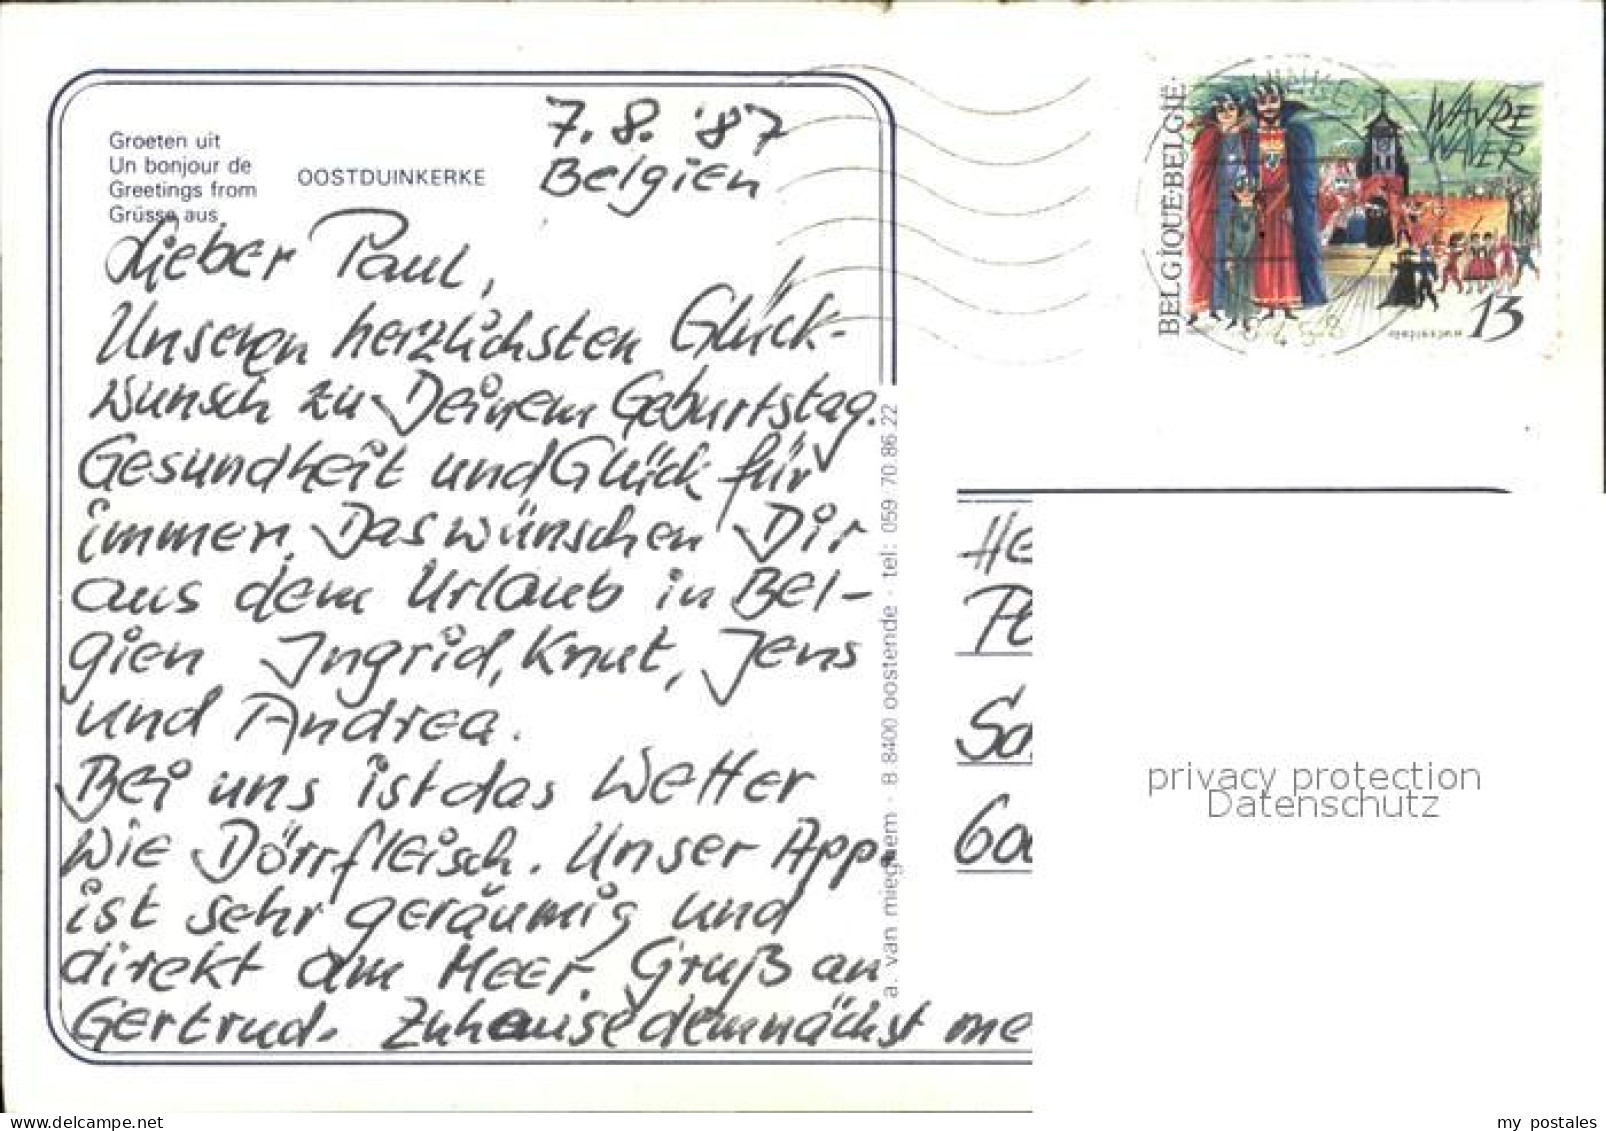 Groeten uit
Un bonjour de
Greetings from
Grüsse aus
OOSTDUINKERKE
7.8.'87
Belgien
Lieber Paul,
Unseren herzlichsten Glück-
wunsch zu Deinem Geburtstag.
Gesundheit und Glück für
immer. Das wünschen Dir
aus dem Urlaub in Bel-
gien Ingrid, Knut, Jens
und Andrea.
Bei uns ist das Wetter
wie Dörrfleisch. Unser App.
ist sehr geräumig und
direkt am Meer. Gruß an
Gertrud. Zuhause demnächst me
a. van mieghem - B 8400 oostende - tel: 059 70 86 22
BELGIQUE·BELGIË
WAVRE
WAVER
13
He
Pa
Sa
60
privacy protection
Datenschutz
my postales